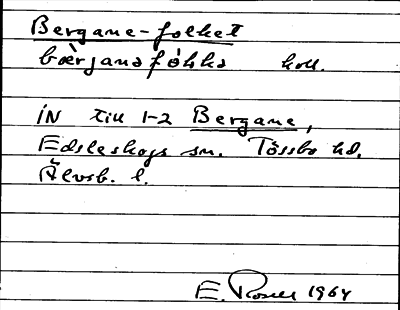 Bergane-folket
bærjanəfɔ́lkə koll.
IN till 1-2 Bergane,
Edsleskogs sn. Tössbo hd.
Älvsb. l.
E. Rosell 1964